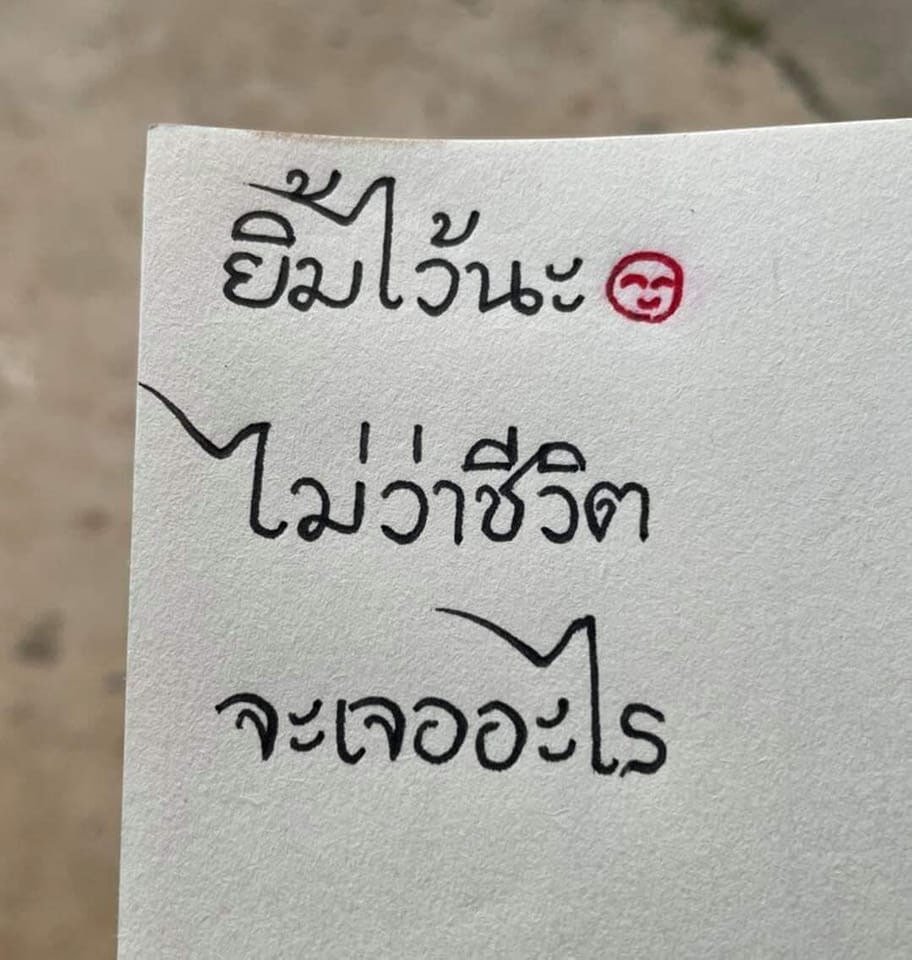 ยิ้มไว้นะ
ไม่ว่าชีวิต
จะเจออะไร